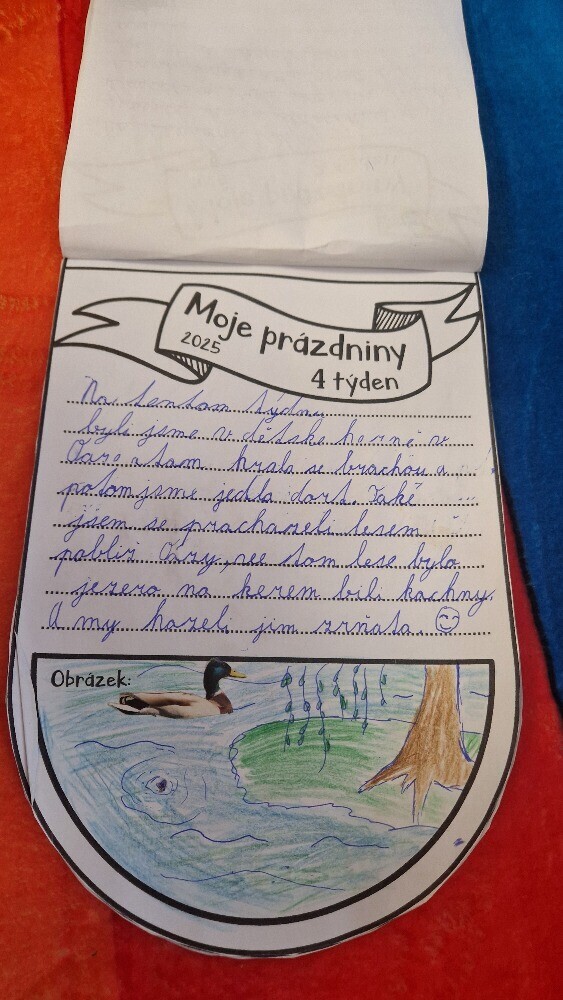 Moje prázdniny
2025
4 týden
Na tentom týdnu
byli jsme v dětske herně v
a tam hrala se brachou a
potom jsme jedla dort. Také
jsem se prachazeli lesem
pobliž Oázy, vee tom lese bylo
jezero na kerem bili kachny.
A my hazeli jim zrňata. ☺
Obrázek: